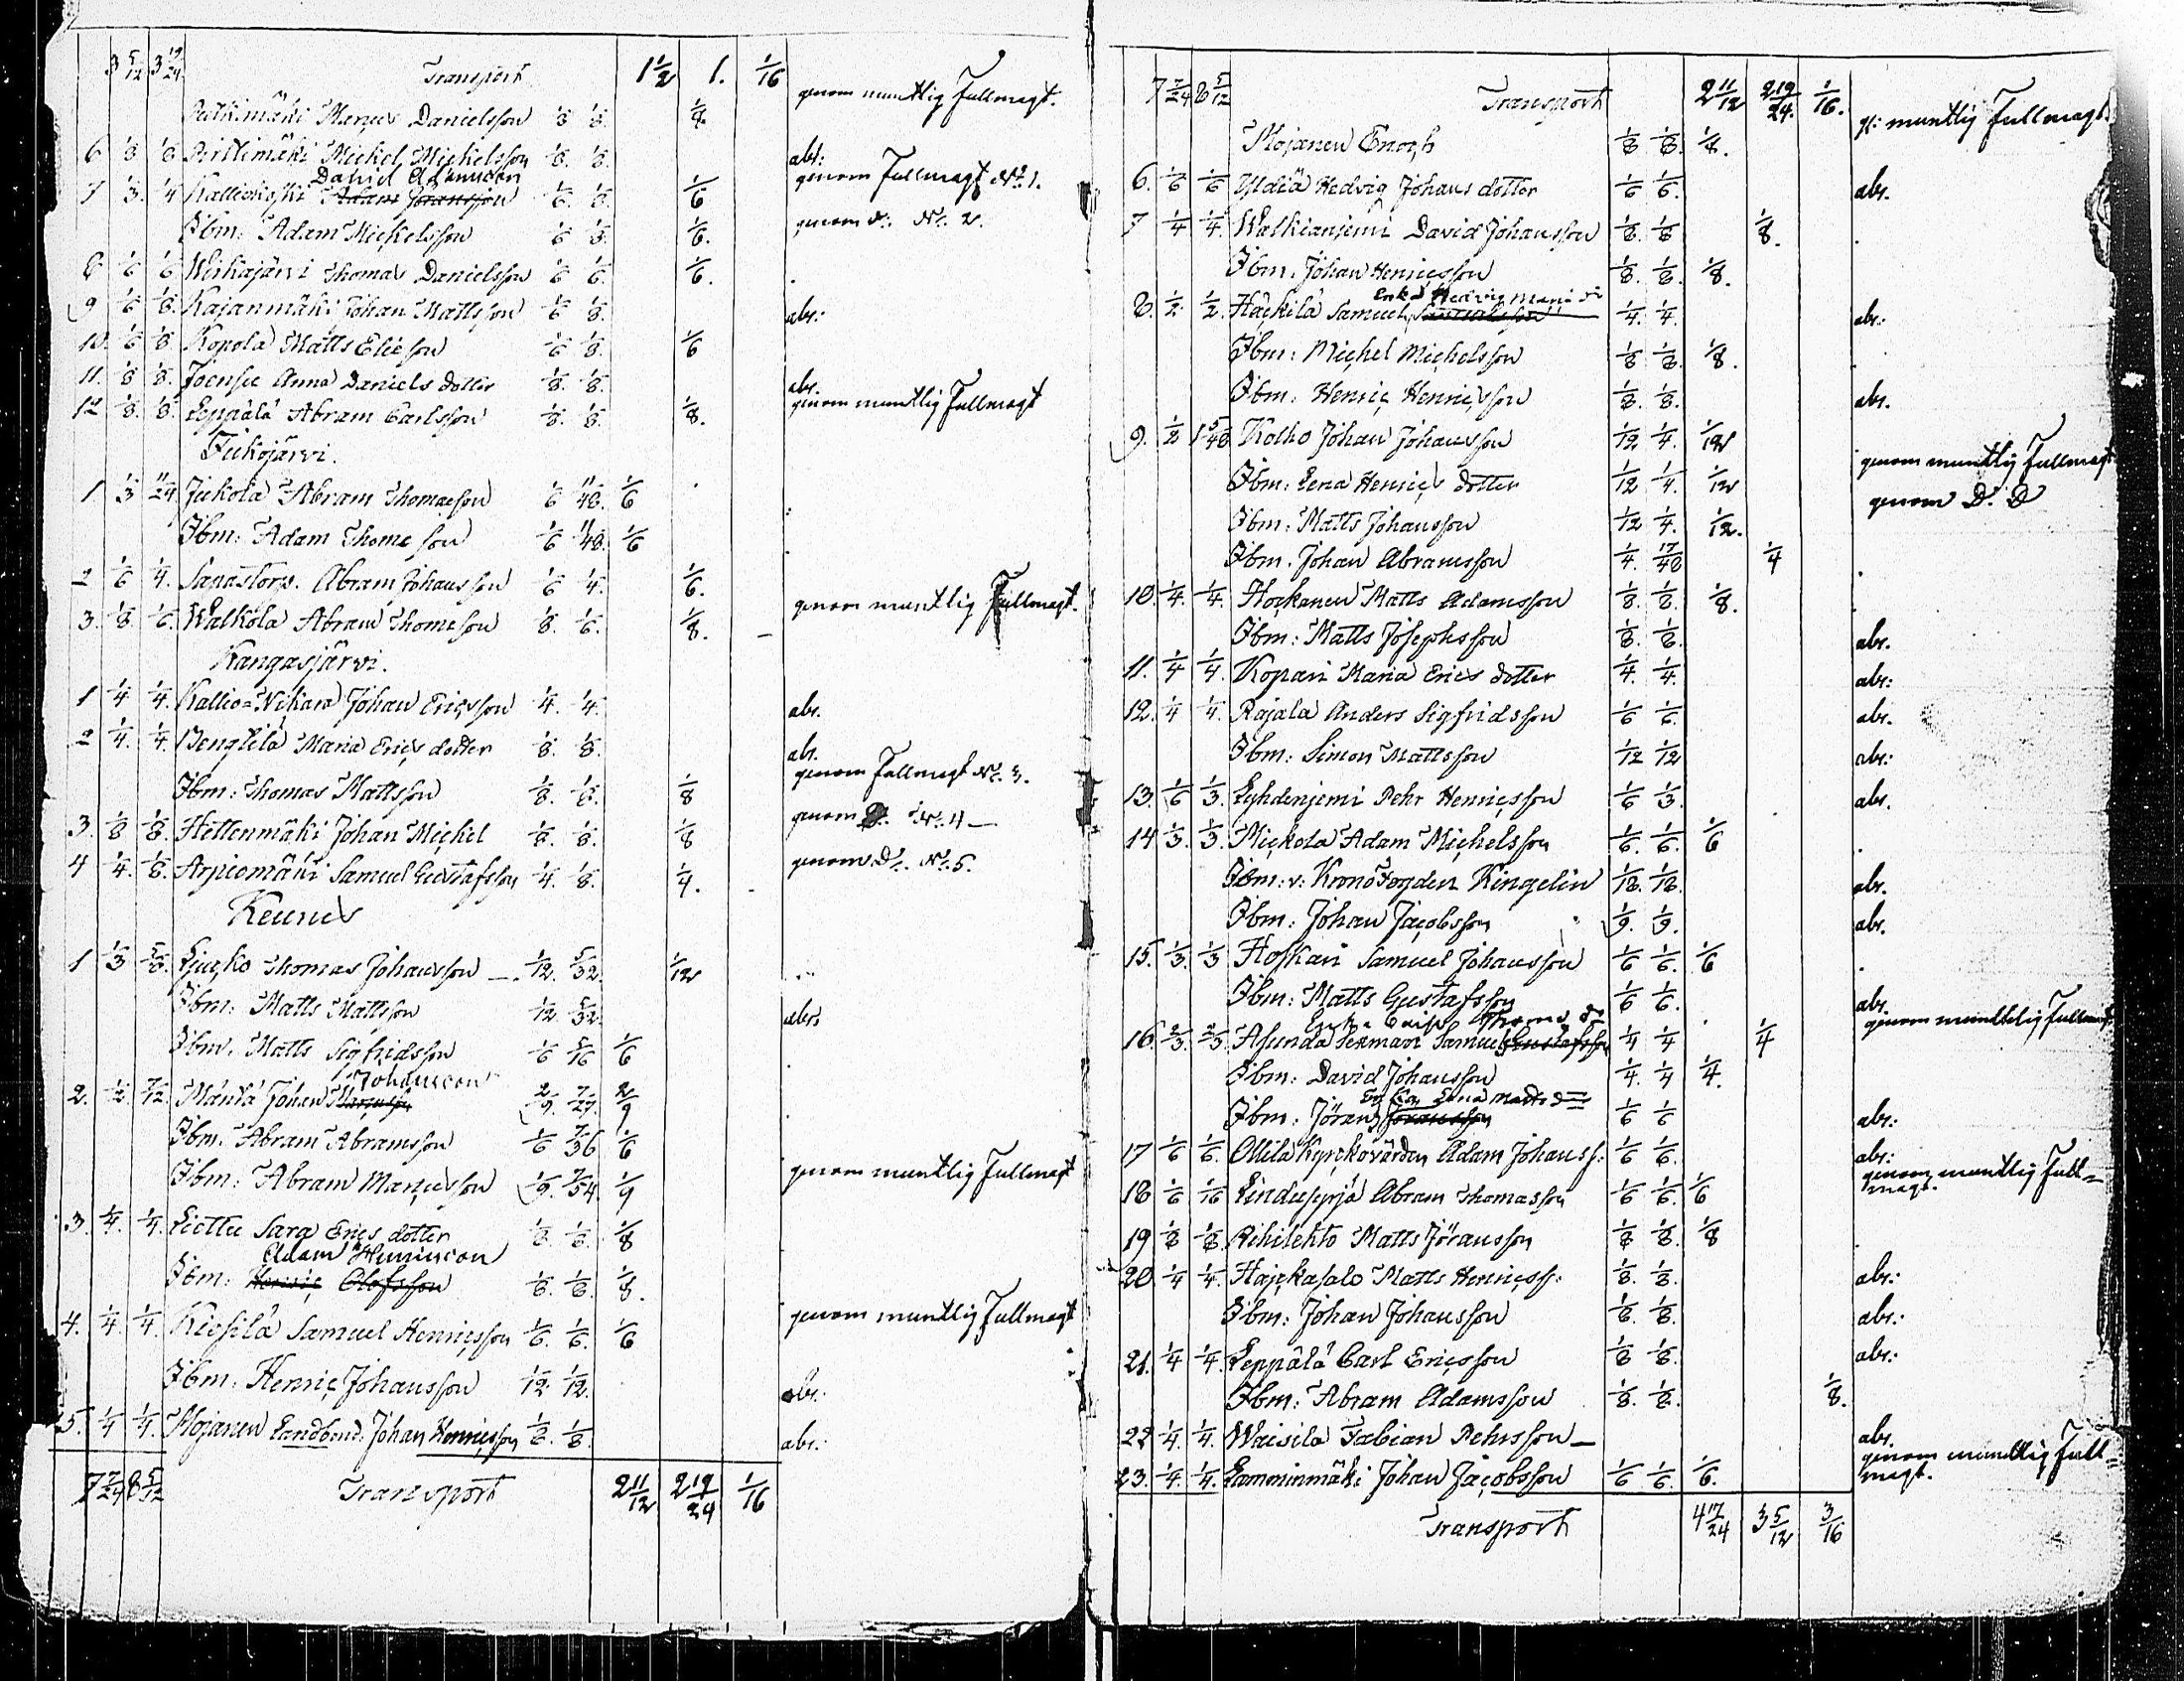 3 5/12 3 19/24 Transport 1 1/2 1. 1/16
genom muntlig Fullmagt.
Marcus Danielsson 1/8 1/8. 1/8.
6 1/8 1/8 Perttimäki Michel Michelsson 1/8. 1/8. abs:
David Adamsson genom Fullmagt No: 1.
7 1/3. 1/4 Kalliokoski Adam Göransson 1/6. 1/8. 1/6
Ibm: Adam Michelsson 1/6 1/8. 1/6. genom do: No: 2.
8 1/6 1/6 Wirkajärvi Thomas Danielsson 1/6 1/6. 1/6.
9 1/6 1/8. Kajanmäki Johan Mattsson 1/6 1/8. abs:
10. 1/6 1/8 Kopola Matts Elieson 1/6 1/8. 1/6
11. 1/8 1/8. Joensu Anna Daniels dotter 1/8. 1/8. abs.
12 1/8. 1/8. Leppälä Abram Carlsson 1/8. 1/8. 1/8. genom muntlig Fullmagt
Jukojärvi.
1 1/3 11/24 Jukola Abram Thomasson 1/6 11/48. 1/6
Ibm: Adam Thomeson 1/6 11/48. 1/6
2 1/6 1/4. Sanastorp. Abram Johansson 1/6 1/4. 1/6.
3. 1/8. 1/6. Walkola Abram Thomeson 1/8. 1/6. 1/8. genom muntlig Fullmagt.
Kangasjärvi.
1 1/4 1/4. Kallio=Nikara Johan Ericsson 1/4. 1/4. abs.
2 1/4. 1/4. Bengtilä Maria Erics dotter 1/8. 1/8. abs.
Ibm: Thomas Mattsson 1/8. 1/8. 1/8 genom Fullmagt No: 3.
3. 1/8 1/8. Hettenmäki Johan Michel 1/8. 1/8. 1/8 genom Do. No: 4
4 1/4. 1/8. Arpiomäki Samuel Gustafsson 1/4. 1/8. 1/4. genom Do. No: 5.
Keunes
1 1/3 5/8. Ljucko Thomas Johansson 1/12. 5/32. 1/12
Ibm: Matts Mattsson 1/12. 5/32. abs
Ibm. Matts Sigfridsson 1/6 5/16 1/6
Johansson
2. 1/2. 7/12. Mäntä Johan 2/9. 7/27. 2/9
Ibm. Abram Abramsson 1/6 7/36 1/6
Ibm: Abram Marcusson 1/9. 7/54 1/9 genom muntlig Fullmagt
3. 1/4. 1/4. Liettu Sara Erics dotter 1/8. 1/8. 1/8
Adam Henricsson
Ibm: Henric Olofsson 1/8. 1/8. 1/8.
4. 1/4. 1/4. Kiesilä Samuel Henricsson 1/6. 1/6. 1/6 genom muntlig Fullmagt
Ibm: Henric Johansson 1/12. 1/12. abs:
5. 1/4 1/4. Mojanen Landbond: Johan Henricsson 1/8. 1/8. abs:
7 7/24 8 5/12 Transport 2 11/12 2 19/24 1/16
7 7/24 8 5/12 Transport 2 11/12 2 19/24. 1/16.
g: muntlig Fullmagt.
Mojanen Enoch 1/8 1/8. 1/8.
6. 1/6 1/6 Yldiä Hedvig Johans dotter 1/6 1/6. abs.
7 1/4 1/4. Walkianjemi David Johansson 1/8. 1/8 1/8.
Ibm: Johan Henricsson 1/8. 1/8. 1/8.
Enka Hedvig Maria dr
8. 1/2 1/2. Häckilä Samuel Samuelsson 1/4. 1/4. abs:
Ibm: Michel Michelsson 1/8 1/8. 1/8.
Ibm: Henric Henricsson 1/8. 1/8. abs.
9. 1/2 1 5/48 Kolho Johan Johansson 1/12 1/4. 1/12
Ibm: Lena Henrics dotter 1/12 1/4. 1/12 genom muntlig Fullmagt
Ibm: Matts Johansson 1/12 1/4. 1/12. genom D. D
Ibm. Johan Abramsson 1/4. 17/48 1/4
10. 1/4. 1/4. Hockanen Matts Adamsson 1/8. 1/8. 1/8.
Ibm: Matts Josephsson 1/8. 1/8. abs.
11. 1/4 1/4. Kopari Maria Erics dotter 1/4. 1/4. abs:
12. 1/4 1/4. Rajala Anders Sigfridsson 1/6 1/6. abs.
Ibm: Simon Mattsson 1/12 1/12 abs:
13. 1/6 1/3. Lyhdenjemi Pehr Henricsson 1/6 1/3. abs.
14 1/3 1/3. Mickola Adam Michelsson 1/6. 1/6. 1/6
Ibm: v: Krono Fogden Ringelin 1/18. 1/18. abs.
Ibm: Johan Jacobsson 1/9. 1/9. abs.
15. 1/3. 1/3 Hoskari Samuel Johansson 1/6 1/6. 1/6
Ibm: Matts Gustafsson 1/6 1/6. abs.
Enka Caisa Thome dr genom muntelig Fullmagt
16. 2/3. 2/3. Asunda Samuel Gustafsson 1/4 1/4 1/4
Ibm: David Johansson 1/4. 1/4 1/4.
Matts dr
Ibm: Jöran Johansson 1/6 1/6 abs:
17 1/6 1/6. Ollila Kyrckovärden Adam Johanss: 1/6 1/6. abs:
18 1/6 1/16 Linduperjä Abram Thomasson 1/6 1/6. 1/6 genom muntlig Full=
magt.
19 1/8 1/8. Rihilehto Matts Jöransson 1/8 1/8. 1/8
20. 1/4 1/4. Hajckasalo Matts Henricss: 1/8. 1/8. abs:
Ibm: Johan Johansson 1/8. 1/8. abs:
21. 1/4 1/4. Leppälä Carl Ericsson 1/8 1/8. abs:
Ibm: Abram Adamsson 1/8. 1/8. 1/8.
22 1/4. 1/4. Waisila Fabian Pehrsson abs.
23. 1/4. 1/4. Lamminmäki Johan Jacobsson 1/6 1/6. 1/6. genom mundtlig Full=
magt.
Transport 4 17/24 3 5/12 3/16